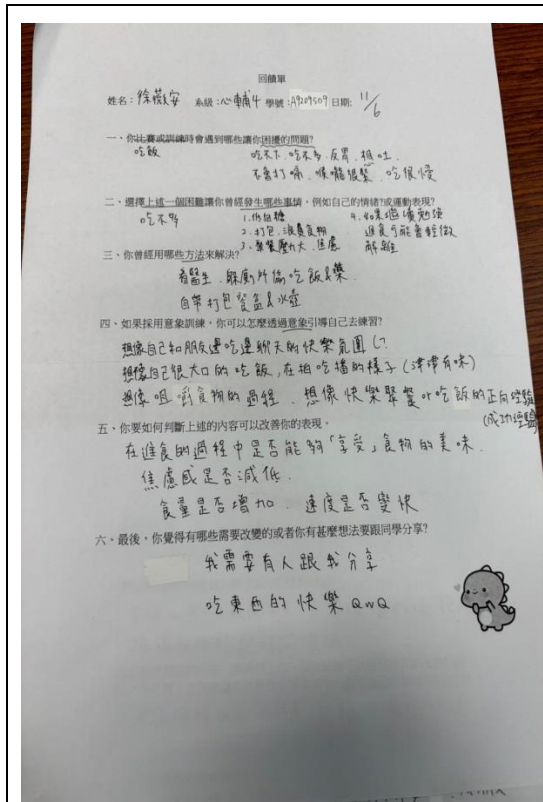 回饋單
姓名：徐薇安 系級：心輔4 學號：A9209509 日期：11/6
一、你比賽或訓練時會遇到哪些讓你困擾的問題?
吃飯
吃不下、吃不多、反胃、想吐
不舒打嗝、喉嚨很緊、吃很慢
二、選擇上述一個困難讓你曾經發生哪些事情，例如自己的情緒?或運動表現?
吃不多
1.低血糖
2.打包、浪費食物
3.聚餐壓力大、焦慮
4.如果過度勉強
進食可能會輕微
解離
三、你曾經用哪些方法來解決?
看醫生、躲廁所偷吃飯&藥
自帶打包餐盒&水壺
四、如果採用意象訓練，你可以怎麼透過意象引導自己去練習?
想像自己和朋友邊吃邊聊天的快樂氛圍
想像自己很大口的吃飯，在拍吃播的樣子(津津有味)
想像咀嚼食物的過程、想像快樂聚餐or吃飯的正向經驗
(成功經驗)
五、你要如何判斷上述的內容可以改善你的表現。
在進食的過程中是否能夠「享受」食物的美味.
焦慮感是否減低.
食量是否增加、速度是否變快
六、最後，你覺得有哪些需要改變的或者你有甚麼想法要跟同學分享?
我需要有人跟我分享
吃東西的快樂QwQ